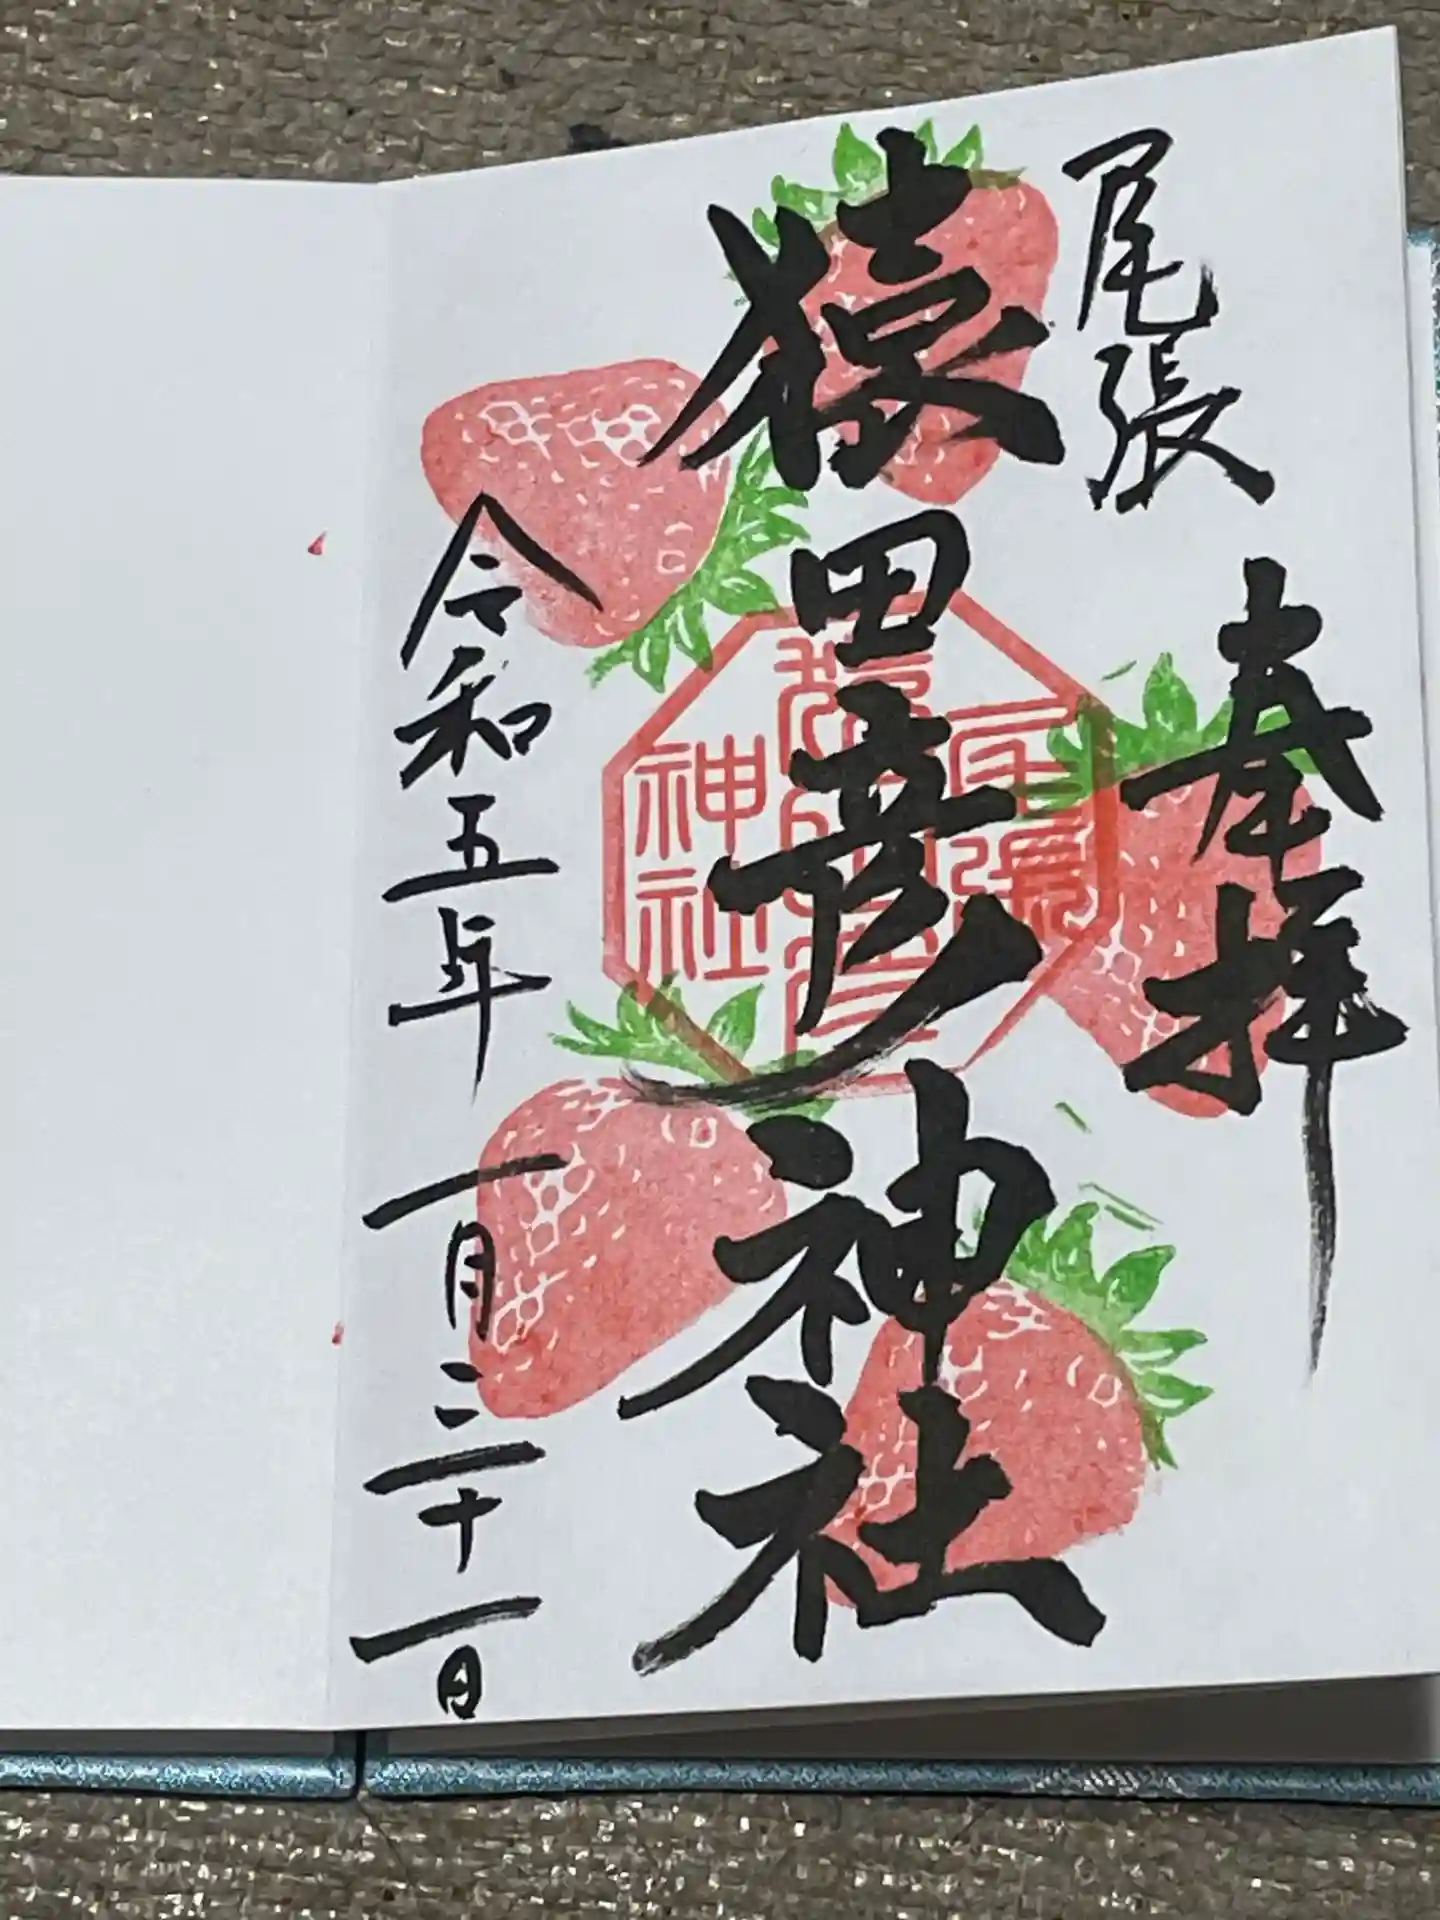 尾張
奉拝
猿田彦神社
令和五年 一月三十一日
尾張
猿田彦
神社